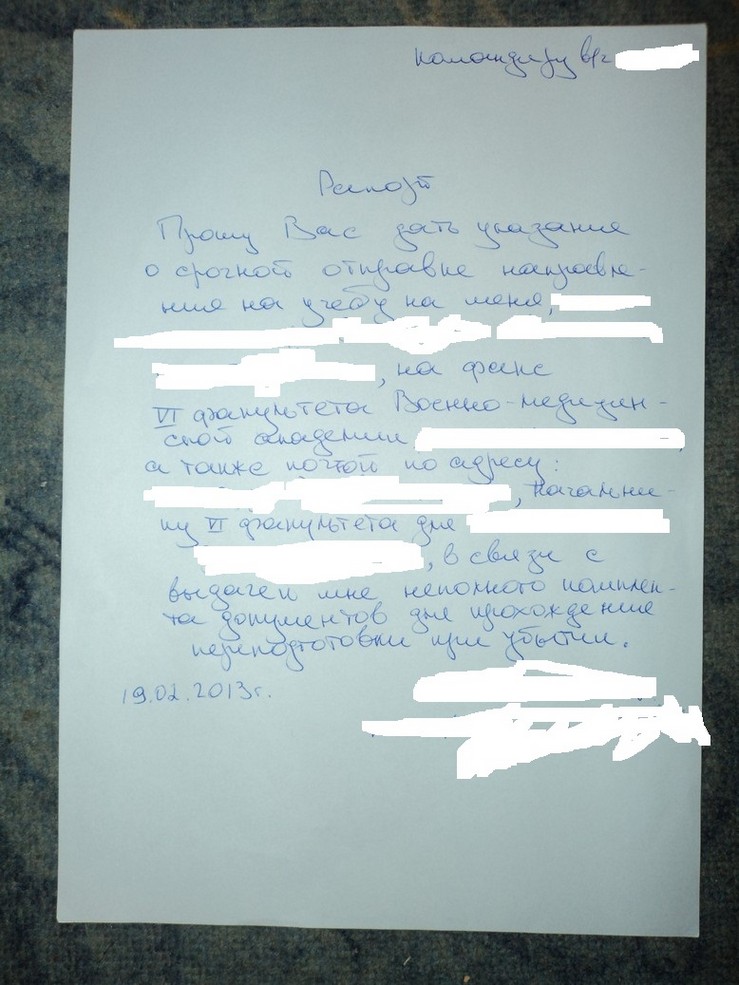 Командиру в/ч
Рапорт
Прошу Вас дать указание
о срочной отправке направле-
ния на учебу на меня,
, на факс
VI факультета Военно-медицин-
ской академии
а также почтой по адресу:
, начальни-
ку VI факультета для
, в связи с
выдачей мне неполного комплек-
та документов для прохождение
переподготовки при убытии.
19.02.2013г.